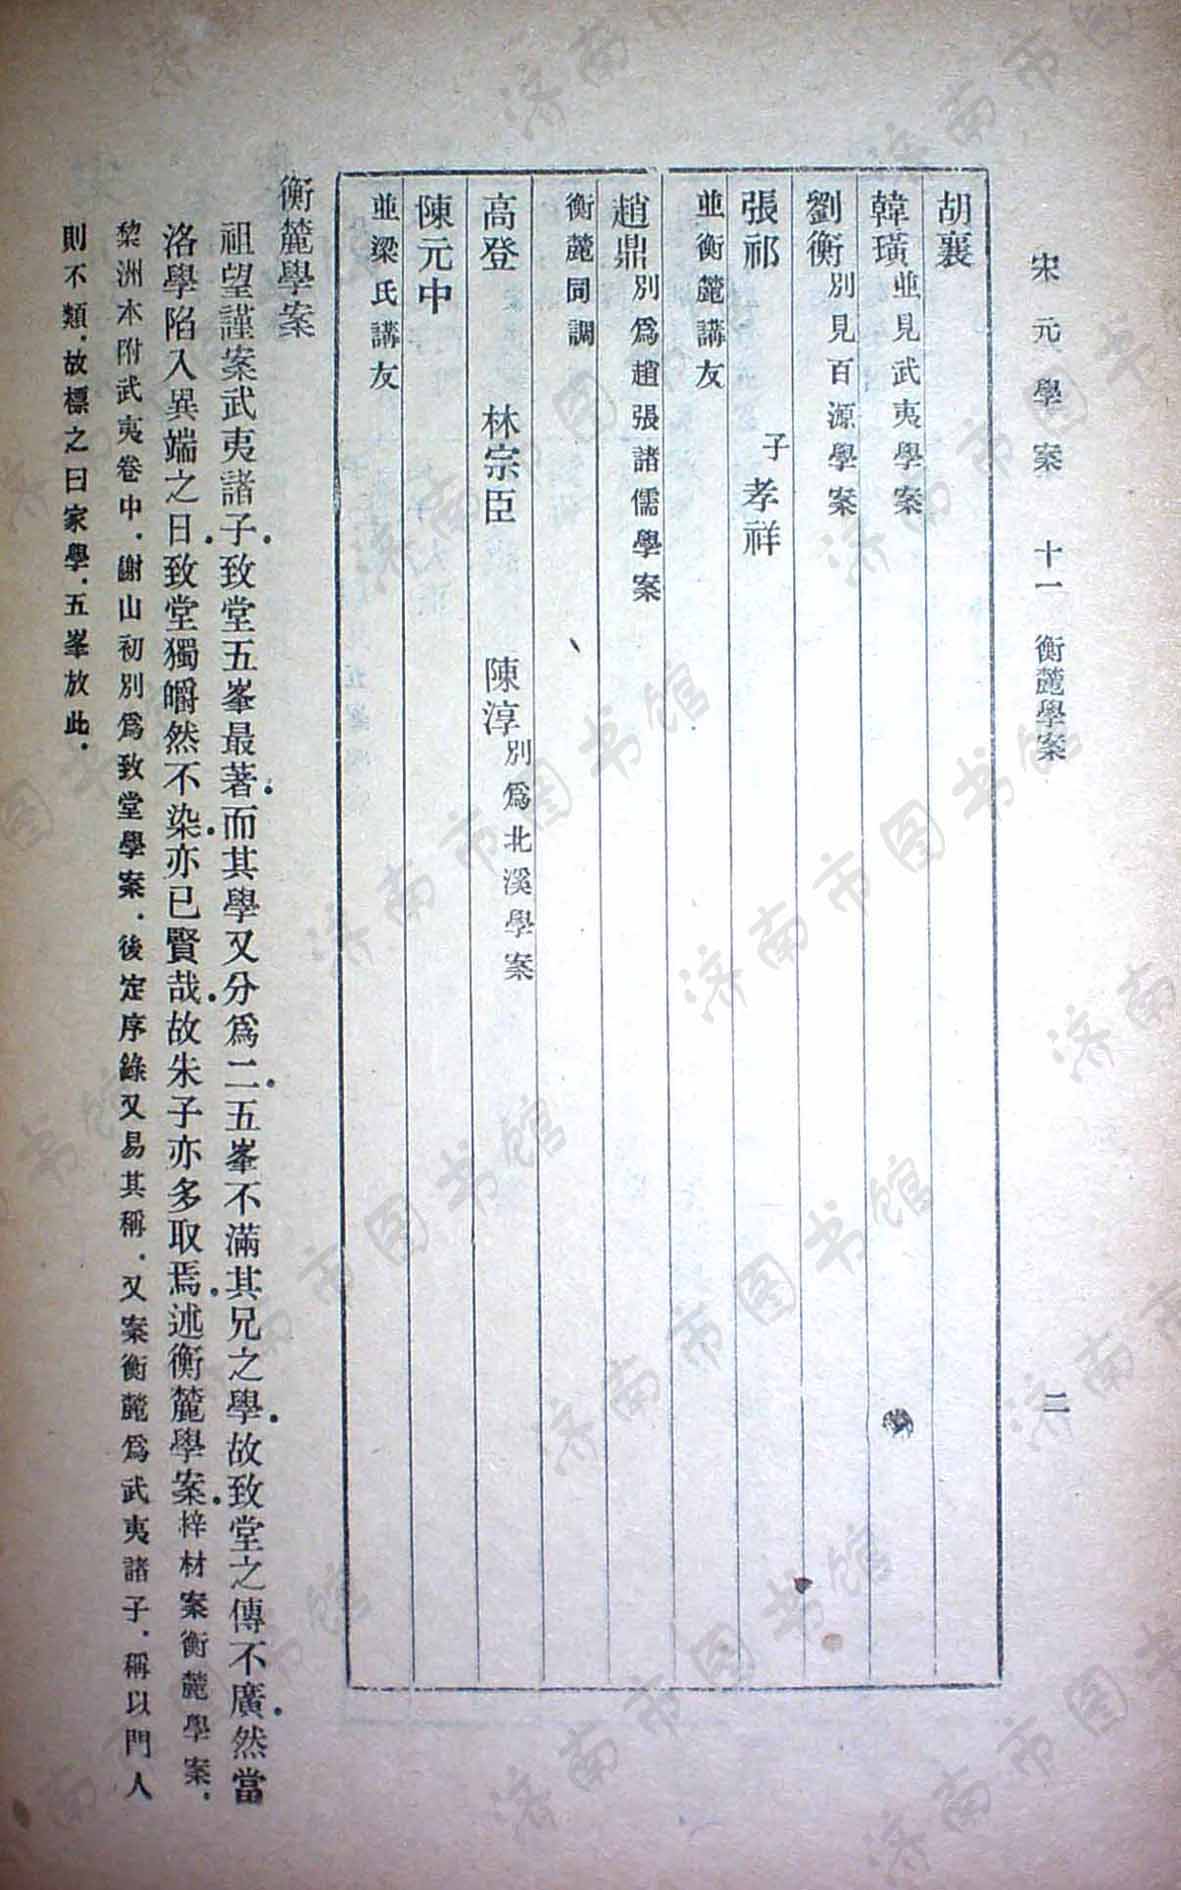 宋元學案　十一　衡麓學案　二
胡襄
韓璜並見武夷學案
劉衡別見百源學案
張祁　子孝祥
並衡麓講友
趙鼎別爲趙張諸儒學案
衡麓同調
高登　林宗臣　陳淳別爲北溪學案
陳元中
並梁氏講友
衡麓學案
祖望謹案武夷諸子．致堂五峯最著．而其學又分爲二．五峯不滿其兄之學．故致堂之傳不廣．然當
洛學陷入異端之日．致堂獨皭然不染．亦已賢哉．故朱子亦多取焉．述衡麓學案．梓材案衡麓學案．
黎洲本附武夷卷中．謝山初別爲致堂學案．後定序錄又易其稱．又案衡麓爲武夷諸子．稱以門人
則不類．故標之曰家學．五峯放此．
济南市图书馆